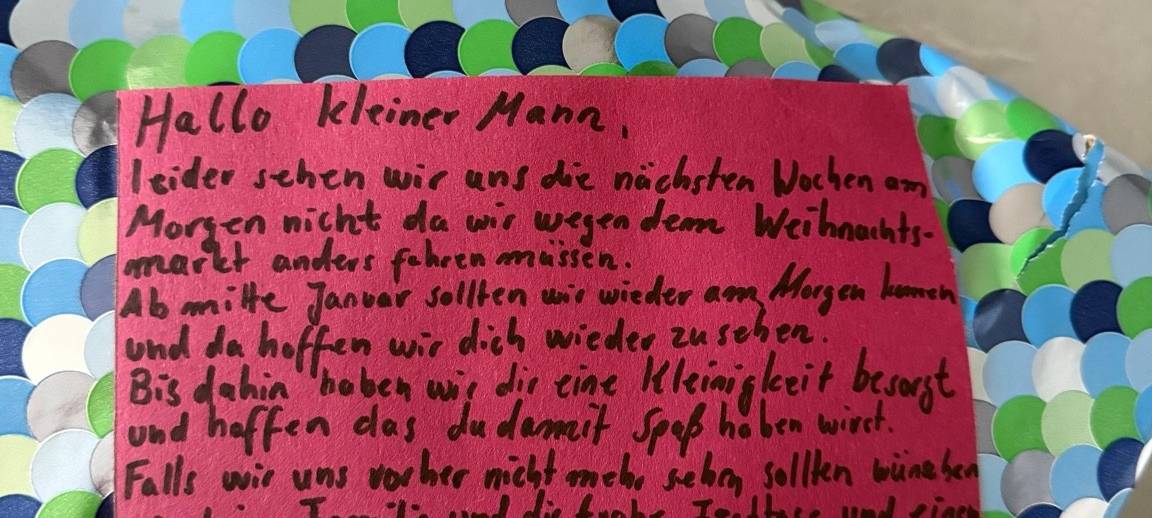 Hallo kleiner Mann,
leider sehen wir uns die nächsten Wochen am
Morgen nicht da wir wegen dem Weihnachts-
markt anders fahren müssen.
Ab mitte Januar sollten wir wieder am Morgen kommen
und da hoffen wir dich wieder zu sehen.
Bis dahin haben wir dir eine Kleinigkeit besorgt
und hoffen das du damit Spaß haben wirst.
Falls wir uns vorher nicht mehr sehn sollten wünschen
Familie und die frohe Festtage und einen